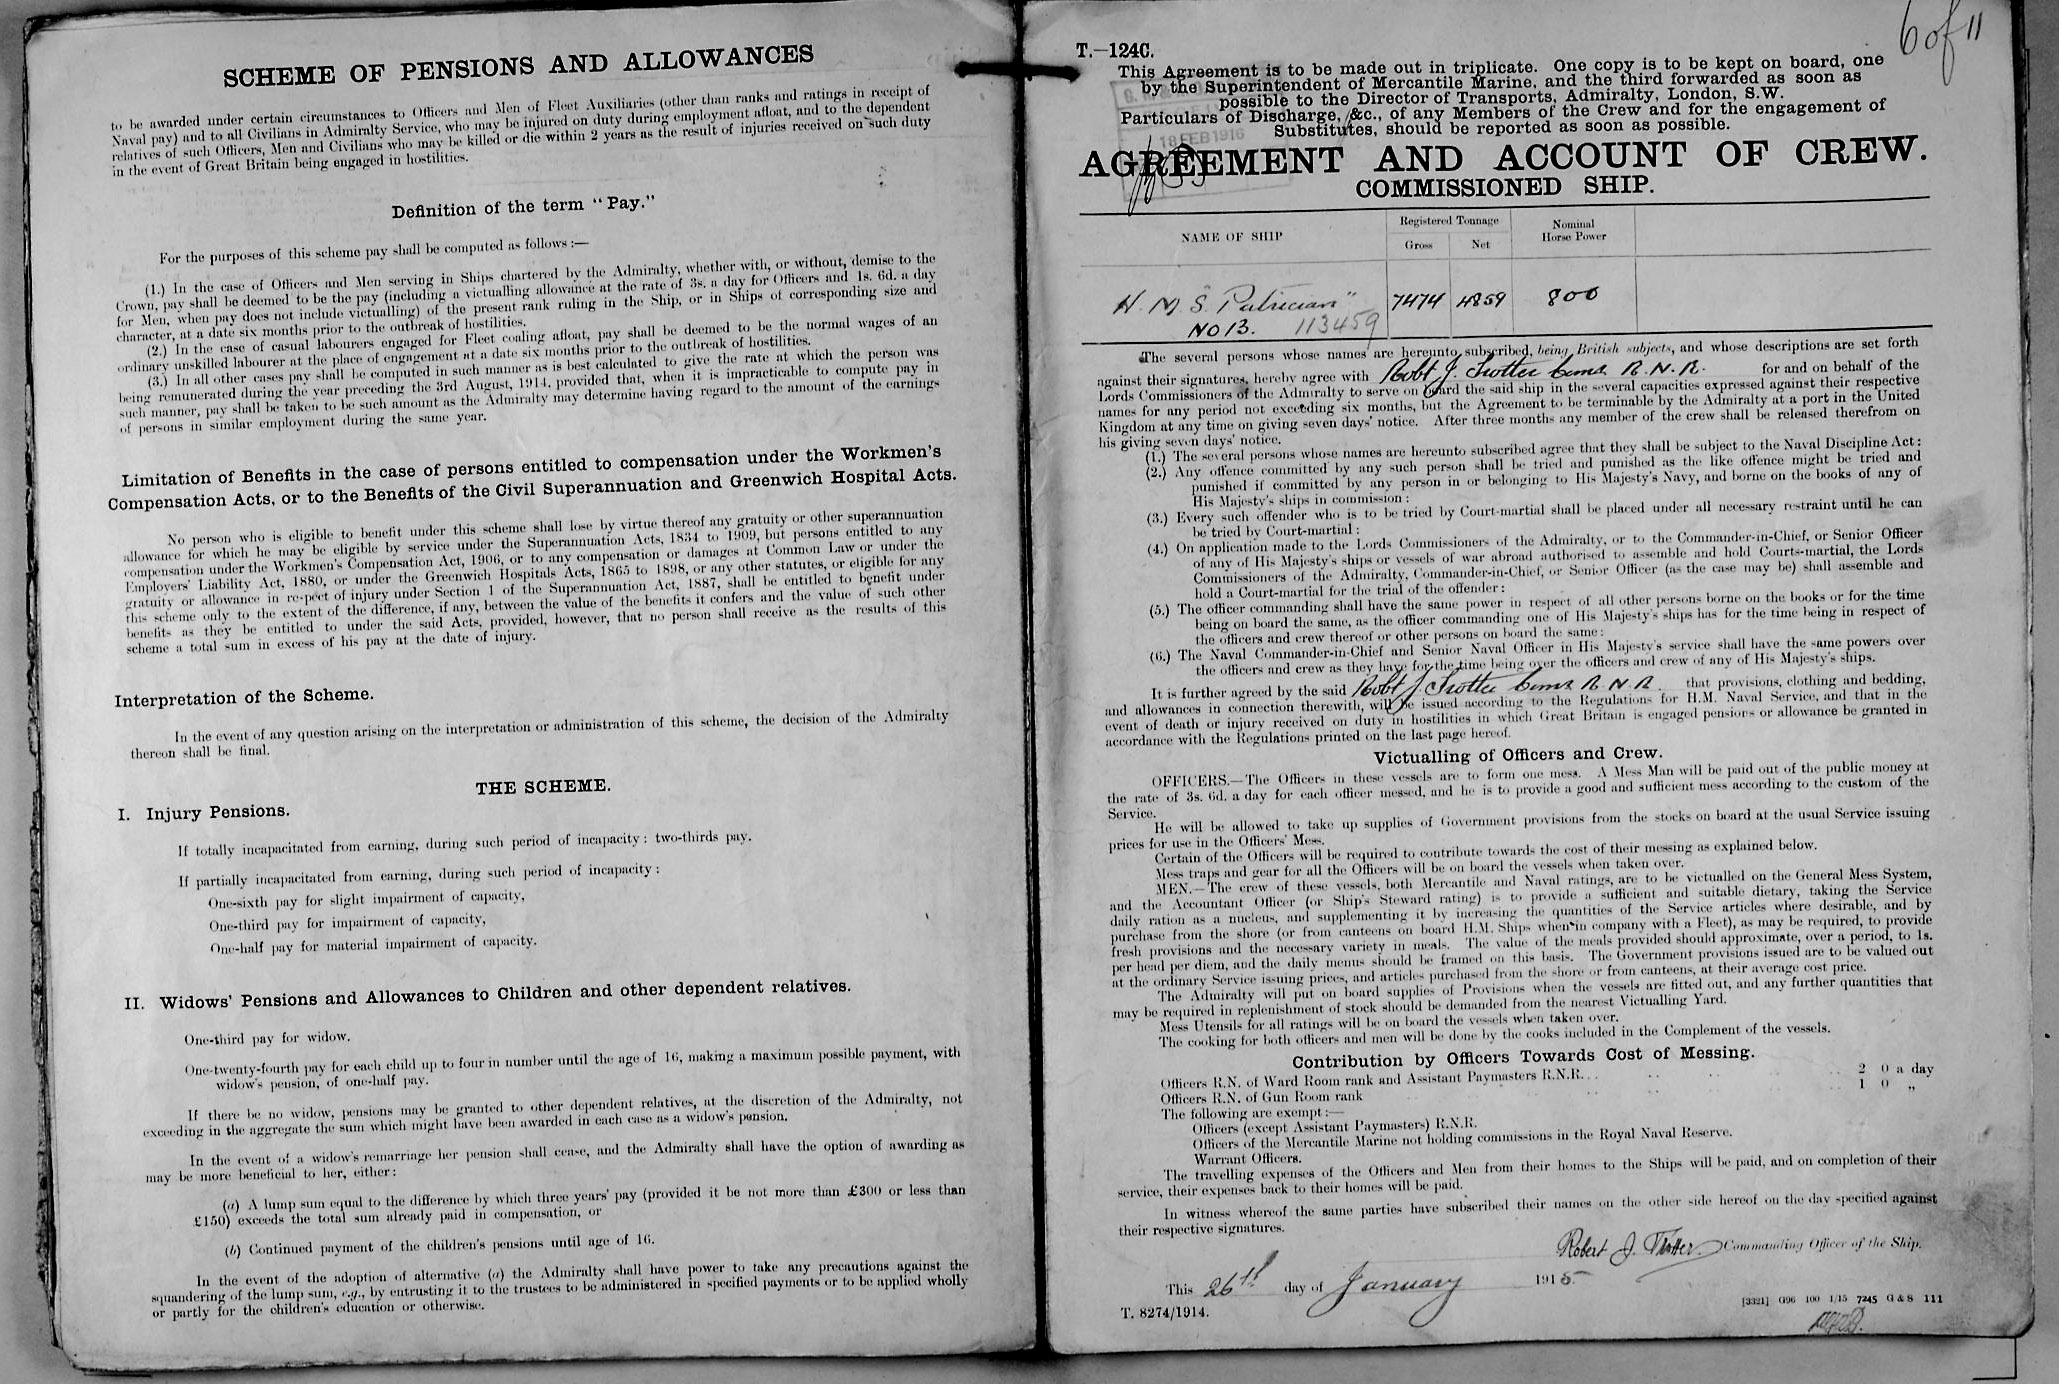 SCHEME OF PENSIONS AND ALLOWANCES
to be awarded under certain circumstances to Officers and Men of Fleet Auxiliaries (other than ranks and ratings in receipt of
Naval pay) and to all Civilians in Admiralty Service, who may be injured on duty during employment afloat, and to the dependent
relatives of such Officers, Men and Civilians who may be killed or die within 2 years as the result of injuries received on such duty
in the event of Great Britain being engaged in hostilities.
Definition of the term "Pay."
For the purposes of this scheme pay shall be computed as follows :—
(1.) In the case of Officers and Men serving in Ships chartered by the Admiralty, whether with, or without, demise to the
Crown, pay shall be deemed to be the pay (including a victualling allowance at the rate of 3s. a day for Officers and 1s. 6d. a day
for Men, when pay does not include victualling) of the present rank ruling in the Ship, or in Ships of corresponding size and
character, at a date six months prior to the outbreak of hostilities.
(2.) In the case of casual labourers engaged for Fleet coaling afloat, pay shall be deemed to be the normal wages of an
ordinary unskilled labourer at the place of engagement at a date six months prior to the outbreak of hostilities.
(3.) In all other cases pay shall be computed in such manner as is best calculated to give the rate at which the person was
being remunerated during the year preceding the 3rd August, 1914, provided that, when it is impracticable to compute pay in
such manner, pay shall be taken to be such amount as the Admiralty may determine having regard to the amount of the earnings
of persons in similar employment during the same year.
Limitation of Benefits in the case of persons entitled to compensation under the Workmen's
Compensation Acts, or to the Benefits of the Civil Superannuation and Greenwich Hospital Acts.
No person who is eligible to benefit under this scheme shall lose by virtue thereof any gratuity or other superannuation
allowance for which he may be eligible by service under the Superannuation Acts, 1834 to 1909, but persons entitled to any
compensation under the Workmen's Compensation Act, 1906, or to any compensation or damages at Common Law or under the
Employers' Liability Act, 1880, or under the Greenwich Hospitals Acts, 1865 to 1898, or any other statutes, or eligible for any
gratuity or allowance in respect of injury under Section 1 of the Superannuation Act, 1887, shall be entitled to benefit under
this scheme only to the extent of the difference, if any, between the value of the benefits it confers and the value of such other
benefits as they be entitled to under the said Acts, provided, however, that no person shall receive as the results of this
scheme a total sum in excess of his pay at the date of injury.
Interpretation of the Scheme.
In the event of any question arising on the interpretation or administration of this scheme, the decision of the Admiralty
thereon shall be final.
THE SCHEME.
I. Injury Pensions.
If totally incapacitated from earning, during such period of incapacity: two-thirds pay.
If partially incapacitated from earning, during such period of incapacity :
One-sixth pay for slight impairment of capacity,
One-third pay for impairment of capacity,
One-half pay for material impairment of capacity.
II. Widows' Pensions and Allowances to Children and other dependent relatives.
One-third pay for widow.
One-twenty-fourth pay for each child up to four in number until the age of 16, making a maximum possible payment, with
widow's pension, of one-half pay.
If there be no widow, pensions may be granted to other dependent relatives, at the discretion of the Admiralty, not
exceeding in the aggregate the sum which might have been awarded in each case as a widow's pension.
In the event of a widow's remarriage her pension shall cease, and the Admiralty shall have the option of awarding as
may be more beneficial to her, either:
(a) A lump sum equal to the difference by which three years' pay (provided it be not more than £300 or less than
£150) exceeds the total sum already paid in compensation, or
(b) Continued payment of the children's pensions until age of 16.
In the event of the adoption of alternative (a) the Admiralty shall have power to take any precautions against the
squandering of the lump sum, e.g., by entrusting it to the trustees to be administered in specified payments or to be applied wholly
or partly for the children's education or otherwise.
6 of 11
T.—124C.
This Agreement is to be made out in triplicate. One copy is to be kept on board, one
by the Superintendent of Mercantile Marine, and the third forwarded as soon as
possible to the Director of Transports, Admiralty, London, S.W.
Particulars of Discharge, &c., of any Members of the Crew and for the engagement of
Substitutes, should be reported as soon as possible.
18 FEB 1916
AGREEMENT AND ACCOUNT OF CREW.
COMMISSIONED SHIP.
NAME OF SHIP
Registered Tonnage
Gross Net
Nominal
Horse Power
H. M. S. "Patrician" 7474 4859 800
No 13. 113459
The several persons whose names are hereunto subscribed, being British subjects, and whose descriptions are set forth
against their signatures, hereby agree with Robt J. Trotter Comr R.N.R. for and on behalf of the
Lords Commissioners of the Admiralty to serve on board the said ship in the several capacities expressed against their respective
names for any period not exceeding six months, but the Agreement to be terminable by the Admiralty at a port in the United
Kingdom at any time on giving seven days' notice. After three months any member of the crew shall be released therefrom on
his giving seven days' notice.
(1.) The several persons whose names are hereunto subscribed agree that they shall be subject to the Naval Discipline Act :
(2.) Any offence committed by any such person shall be tried and punished as the like offence might be tried and
punished if committed by any person in or belonging to His Majesty's Navy, and borne on the books of any of
His Majesty's ships in commission :
(3.) Every such offender who is to be tried by Court-martial shall be placed under all necessary restraint until he can
be tried by Court-martial :
(4.) On application made to the Lords Commissioners of the Admiralty, or to the Commander-in-Chief, or Senior Officer
of any of His Majesty's ships or vessels of war abroad authorised to assemble and hold Courts-martial, the Lords
Commissioners of the Admiralty, Commander-in-Chief, or Senior Officer (as the case may be) shall assemble and
hold a Court-martial for the trial of the offender :
(5.) The officer commanding shall have the same power in respect of all other persons borne on the books or for the time
being on board the same, as the officer commanding one of His Majesty's ships has for the time being in respect of
the officers and crew thereof or other persons on board the same :
(6.) The Naval Commander-in-Chief and Senior Naval Officer in His Majesty's service shall have the same powers over
the officers and crew as they have for the time being over the officers and crew of any of His Majesty's ships.
It is further agreed by the said Robt J Trotter Comr R N R that provisions, clothing and bedding,
and allowances in connection therewith, will be issued according to the Regulations for H.M. Naval Service, and that in the
event of death or injury received on duty in hostilities in which Great Britain is engaged pensions or allowance be granted in
accordance with the Regulations printed on the last page hereof.
Victualling of Officers and Crew.
OFFICERS.—The Officers in these vessels are to form one mess. A Mess Man will be paid out of the public money at
the rate of 3s. 6d. a day for each officer messed, and he is to provide a good and sufficient mess according to the custom of the
Service.
He will be allowed to take up supplies of Government provisions from the stocks on board at the usual Service issuing
prices for use in the Officers' Mess.
Certain of the Officers will be required to contribute towards the cost of their messing as explained below.
Mess traps and gear for all the Officers will be on board the vessels when taken over.
MEN.—The crew of these vessels, both Mercantile and Naval ratings, are to be victualled on the General Mess System,
and the Accountant Officer (or Ship's Steward rating) is to provide a sufficient and suitable dietary, taking the Service
daily ration as a nucleus, and supplementing it by increasing the quantities of the Service articles where desirable, and by
purchase from the shore (or from canteens on board H.M. Ships when in company with a Fleet), as may be required, to provide
fresh provisions and the necessary variety in meals. The value of the meals provided should approximate, over a period, to 1s.
per head per diem, and the daily menus should be framed on this basis. The Government provisions issued are to be valued out
at the ordinary Service issuing prices, and articles purchased from the shore or from canteens, at their average cost price.
The Admiralty will put on board supplies of Provisions when the vessels are fitted out, and any further quantities that
may be required in replenishment of stock should be demanded from the nearest Victualling Yard.
Mess Utensils for all ratings will be on board the vessels when taken over.
The cooking for both officers and men will be done by the cooks included in the Complement of the vessels.
Contribution by Officers Towards Cost of Messing.
Officers R.N. of Ward Room rank and Assistant Paymasters R.N.R. .. .. .. .. .. 2 0 a day
Officers R.N. of Gun Room rank .. .. .. .. .. 1 0 „
The following are exempt :—
Officers (except Assistant Paymasters) R.N.R.
Officers of the Mercantile Marine not holding commissions in the Royal Naval Reserve.
Warrant Officers.
The travelling expenses of the Officers and Men from their homes to the Ships will be paid, and on completion of their
service, their expenses back to their homes will be paid.
In witness whereof the same parties have subscribed their names on the other side hereof on the day specified against
their respective signatures.
Robert J. Trotter Commanding Officer of the Ship.
This 26th day of January 1915.
T. 8274/1914.
[3321] G96 100 1/15 7245 G & S 111